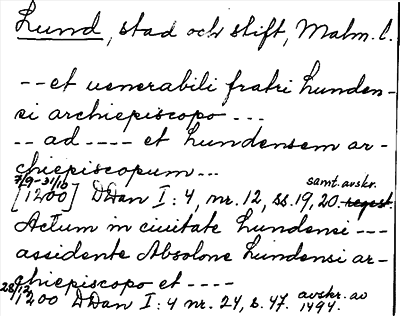 Lund, stad och stift, Malm. l.
-- et uenerabili fratri Lunden-
si archiepiscopo ---
-- ad ---- et Lundensem ar-
chiepiscopum ---
7/9-31/10 samt. avskr.
[1200] DDan I:4, nr. 12, ss. 19, 20. regest.
Actum in ciuitate Lundensi ---
assidente Absolone Lundensi ar-
chiepiscopo et ----
28/12 1200 DDan I:4 nr. 24, s. 47. avskr. av
1494.